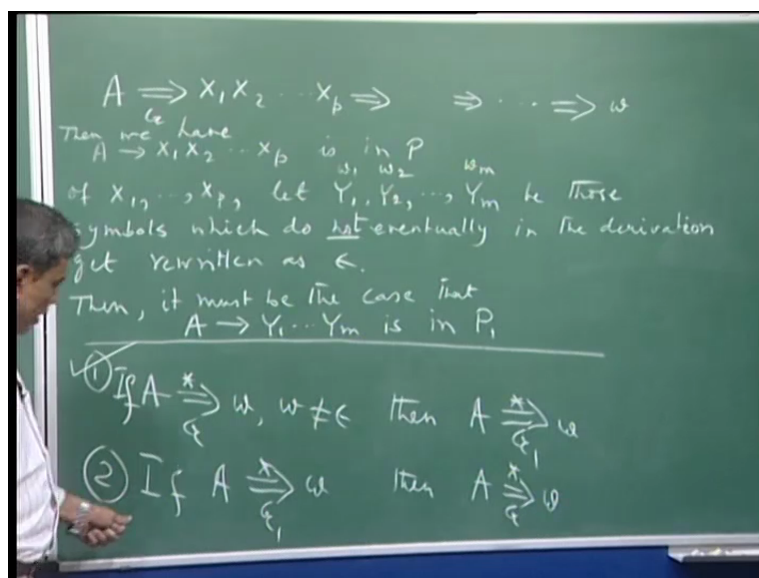 A ⇒ X₁ X₂ ⋯ Xₚ ⇒ ⇒ ⋯ ⇒ w
G
Then we have
A → X₁ X₂ ⋯ Xₚ is in P
w₁ w₂ wₘ
of X₁, ⋯, Xₚ, let Y₁, Y₂, ⋯, Yₘ be those
symbols which do not eventually in the derivation
get rewritten as ϵ.
Then, it must be the case that
A → Y₁ ⋯ Yₘ is in P₁
① If A *⇒G w, w ≠ ϵ then A *⇒G₁ w
② If A *⇒G₁ w then A *⇒G w